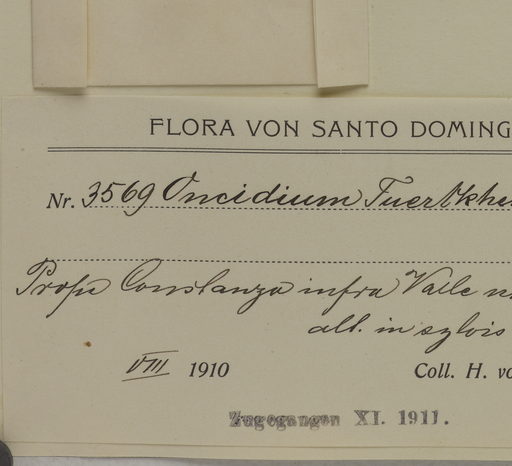 FLORA VON SANTO DOMING
Nr. 3569 Oncidium Tuerckhe
Prope Constanza infra Valle n
alt. in sylvis
VIII 1910
Coll. H. vo
Zugegangen XI. 1911.